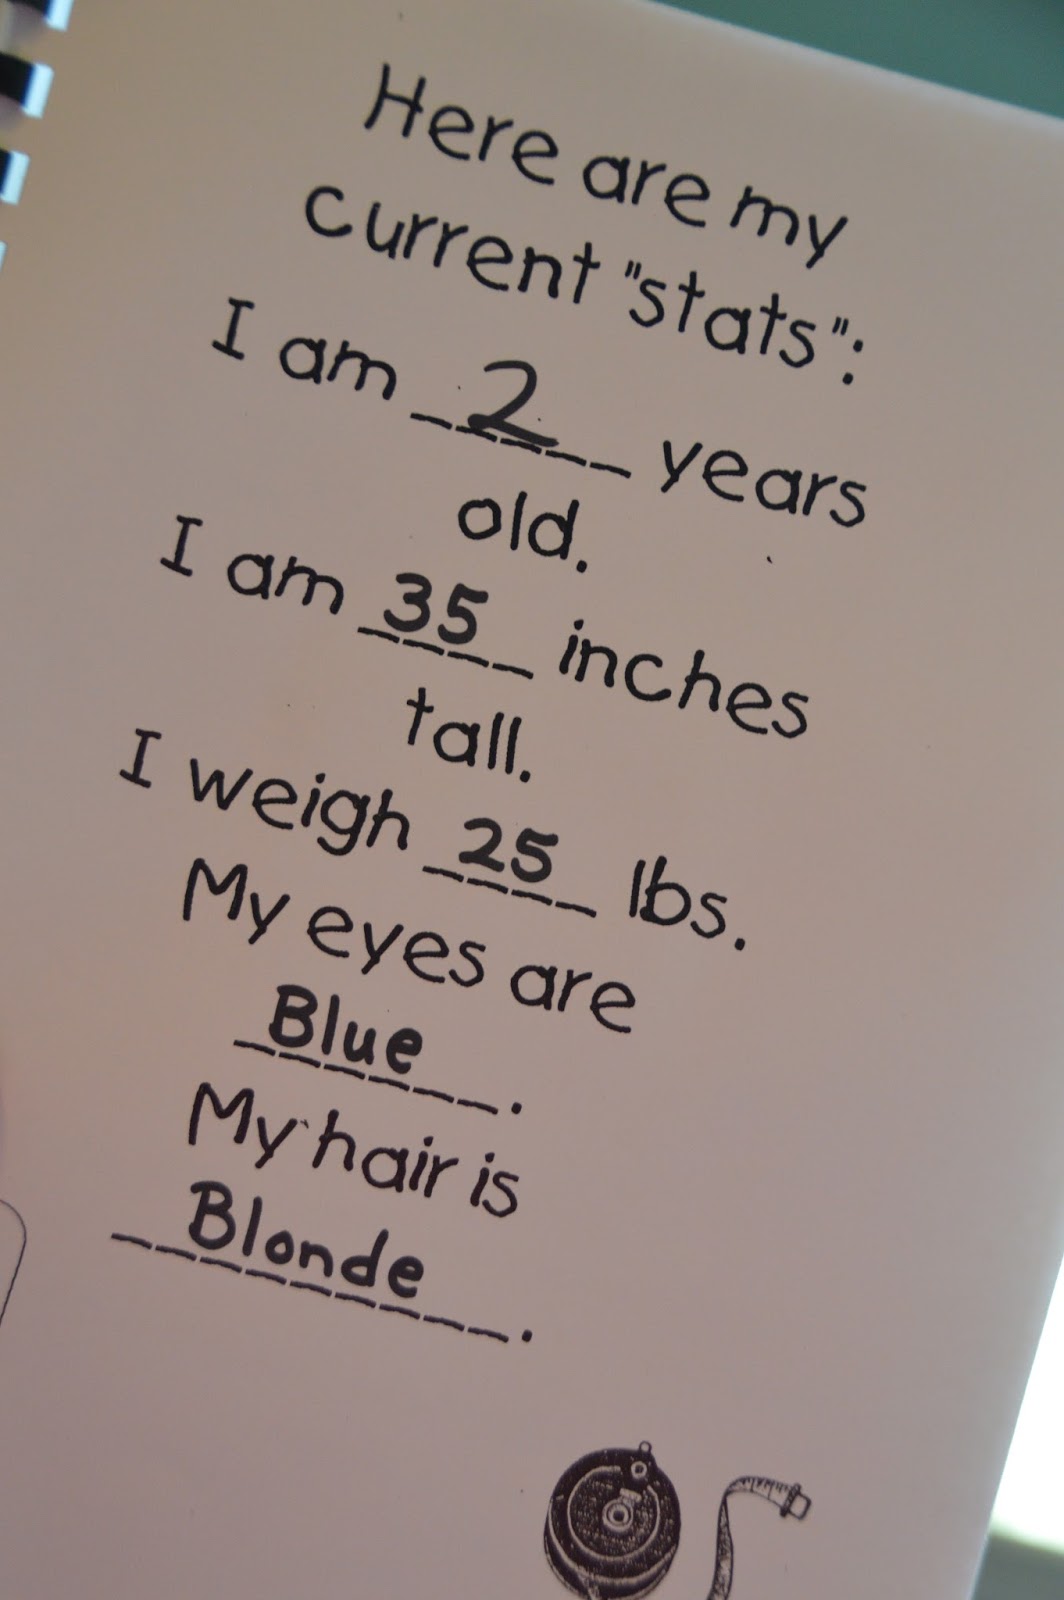 Here are my
current "stats":
I am 2 years
old.
I am 35 inches
tall.
I weigh 25 lbs.
My eyes are
Blue.
My hair is
Blonde.